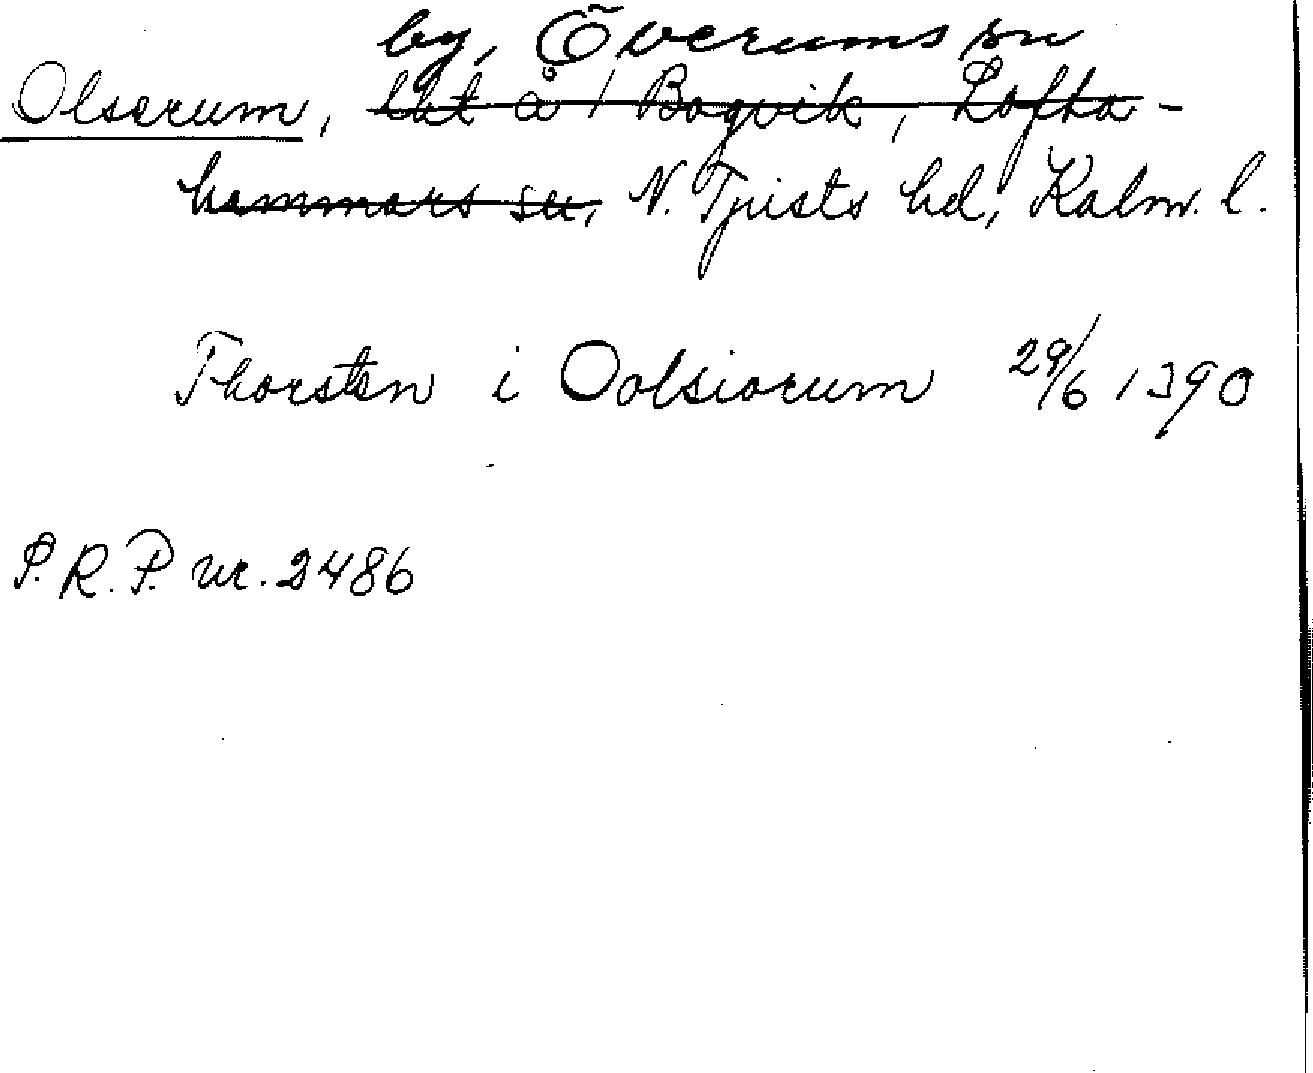 by, Överums sn
Olserum, lht å 1 Bogvik, Lofta-
hammars sn, N. Tjusts hd, Kalm. l.
Thorsten i Oolsiorum 29/6 1390
S.R.P. nr. 2486